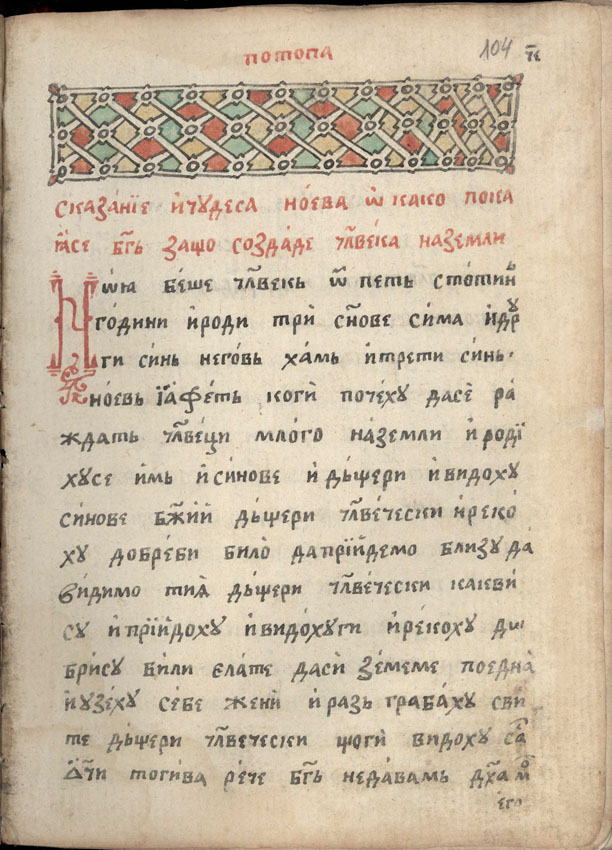 потопа 104
сказа́нїе и҆ чꙋдеса ноева ѿ како пока
ꙗ҆ се бг҃ь защо создаде чл҃века на земли
Ноꙗ беше чл҃векь ѿ петь стотинь
години и҆ роди три сн҃ове сима и҆ дрꙋ
ги синь неговь хамь и҆ трети синь·
ноевь і҆аѳеть коги почехꙋ да се ра
ждать чл҃веци много на земли и҆ роди
хꙋсе имь и҆ синове и҆ дьщери и҆ видохꙋ
синове бж҃ии дьщери чл҃вечески и҆ реко
хꙋ добре би било да прїи҆демо близꙋ да
видимо тиꙗ дьщери чл҃вечески какви
сꙋ и҆ прїи҆дохꙋ и҆ видохꙋги и҆ рекохꙋ дѡ
бри сꙋ били елате даси земеме по една
и҆ ꙋзехꙋ себе жени и҆ разьграбахꙋ сви
те дьщери чл҃вечески щоги видохꙋ са
дч҃и тогива рече бг҃ь недавамь дх҃а мо
его